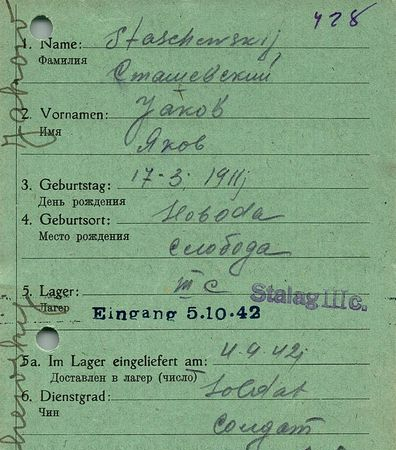 428
1. Name: Staschewskij
Фамилия
Сташевский
2. Vornamen: Jakob
Имя
Яков
3. Geburtstag: 17.3.1911j
День рождения
4. Geburtsort: Sloboda
Место рождения
слобода
5. Lager: III C Stalag III c.
Лагер
Eingang 5.10.42
5a. Im Lager eingeliefert am: 4.9.42j
Доставлен в лагер (число)
6. Dienstgrad: Soldat
Чин
солдат